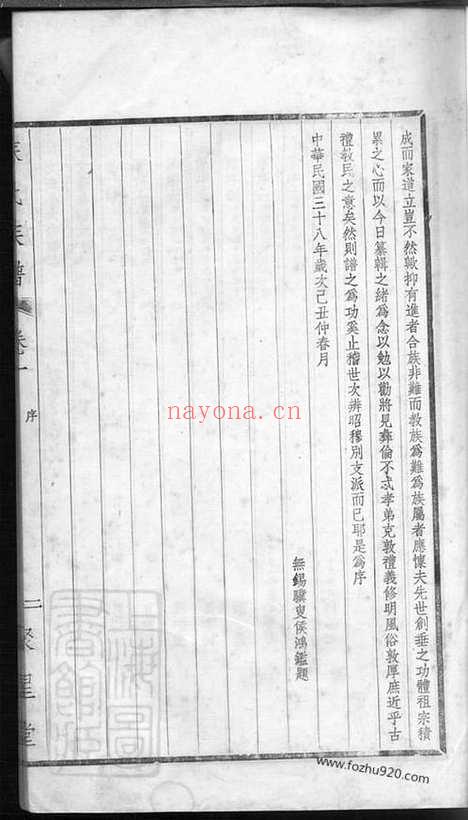 成而家道立豈不然歟抑有進者合族非難而教族為難為族屬者應懷夫先世創垂之功體祖宗積
累之心而以今日纂輯之緒為念以勉以勸將見彝倫不忒孝弟克敦禮義修明風俗敦厚庶近乎古
禮教民之意矣然則譜之為功奚止稽世次辨昭穆別支派而已耶是為序
中華民國三十八年歲次己丑仲春月
無錫驥叟侯鴻鑑題
氏族譜
卷一
序
二
聚星堂
上海圖書館藏
nayona.cn
www.fozhu920.com